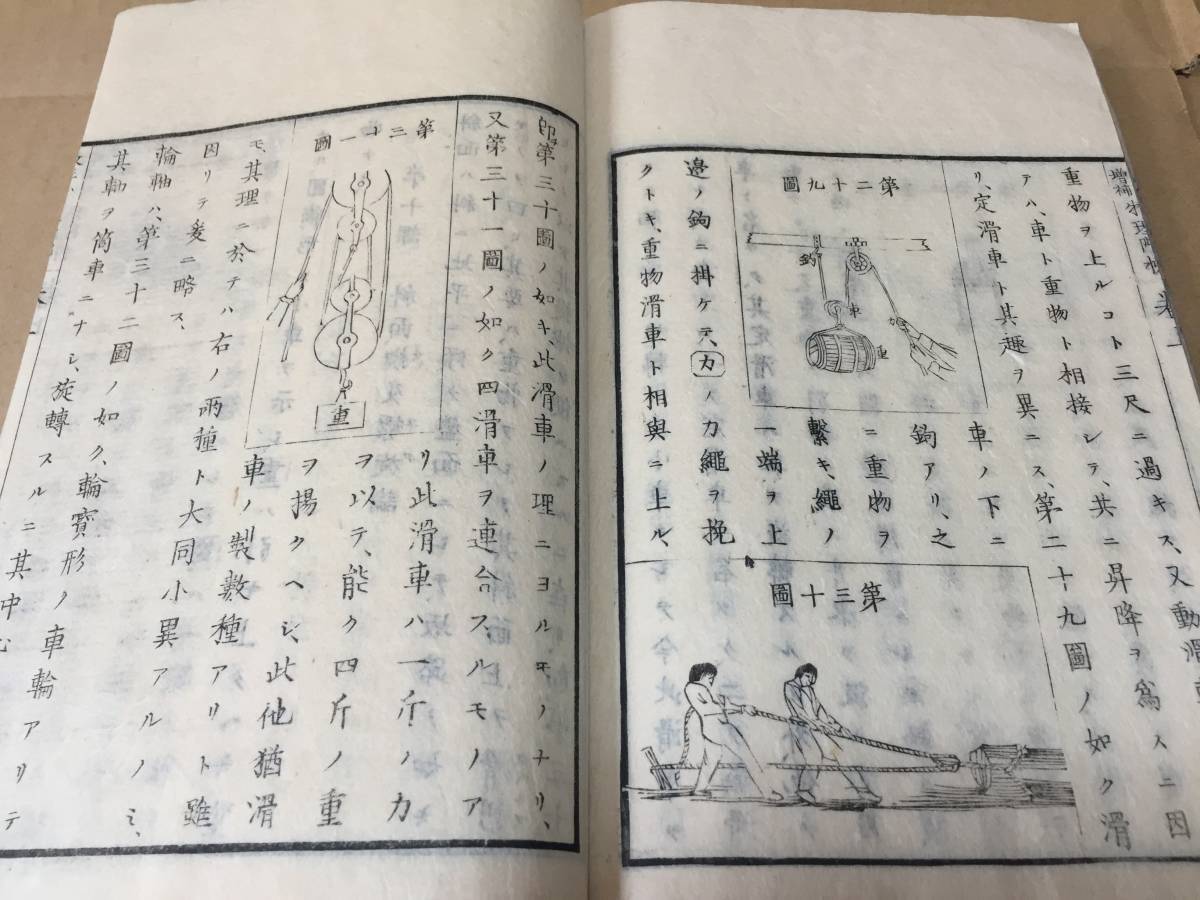 増補
重物ヲ上ルコト三尺ニ過キス、又動滑車
テハ、車ト重物ト相接シテ、共ニ昇降ヲ爲スニ因
リ、定滑車ト其趣ヲ異ニス、第二十九圖ノ如ク滑
車ノ下ニ
鉤アリ、之
ニ重物ヲ
繫キ、繩ノ
一端ヲ上
邊ノ鉤ニ掛ケテ、力ノ力繩ヲ挽
クトキ、重物滑車ト相與ニ上ル、
第二十九圖
鉤
車
重
第三十圖
即第三十圖ノ如キ、此滑車ノ理ニヨルモノナリ、
又第三十一圖ノ如ク四滑車ヲ連合スルモノア
リ此滑車ハ一斤ノ力
ヲ以テ、能ク四斤ノ重
ヲ揚クヘシ、此他猶滑
車ノ製數種アリト雖
モ、其理ニ於テハ右ノ兩種ト大同小異アルノミ、
因リテ爰ニ略ス、
輪軸ハ、第三十二圖ノ如ク、輪寶形ノ車輪アリテ
其軸ヲ筒車ニナシ、旋轉スルニ其中心
第三十一圖
重